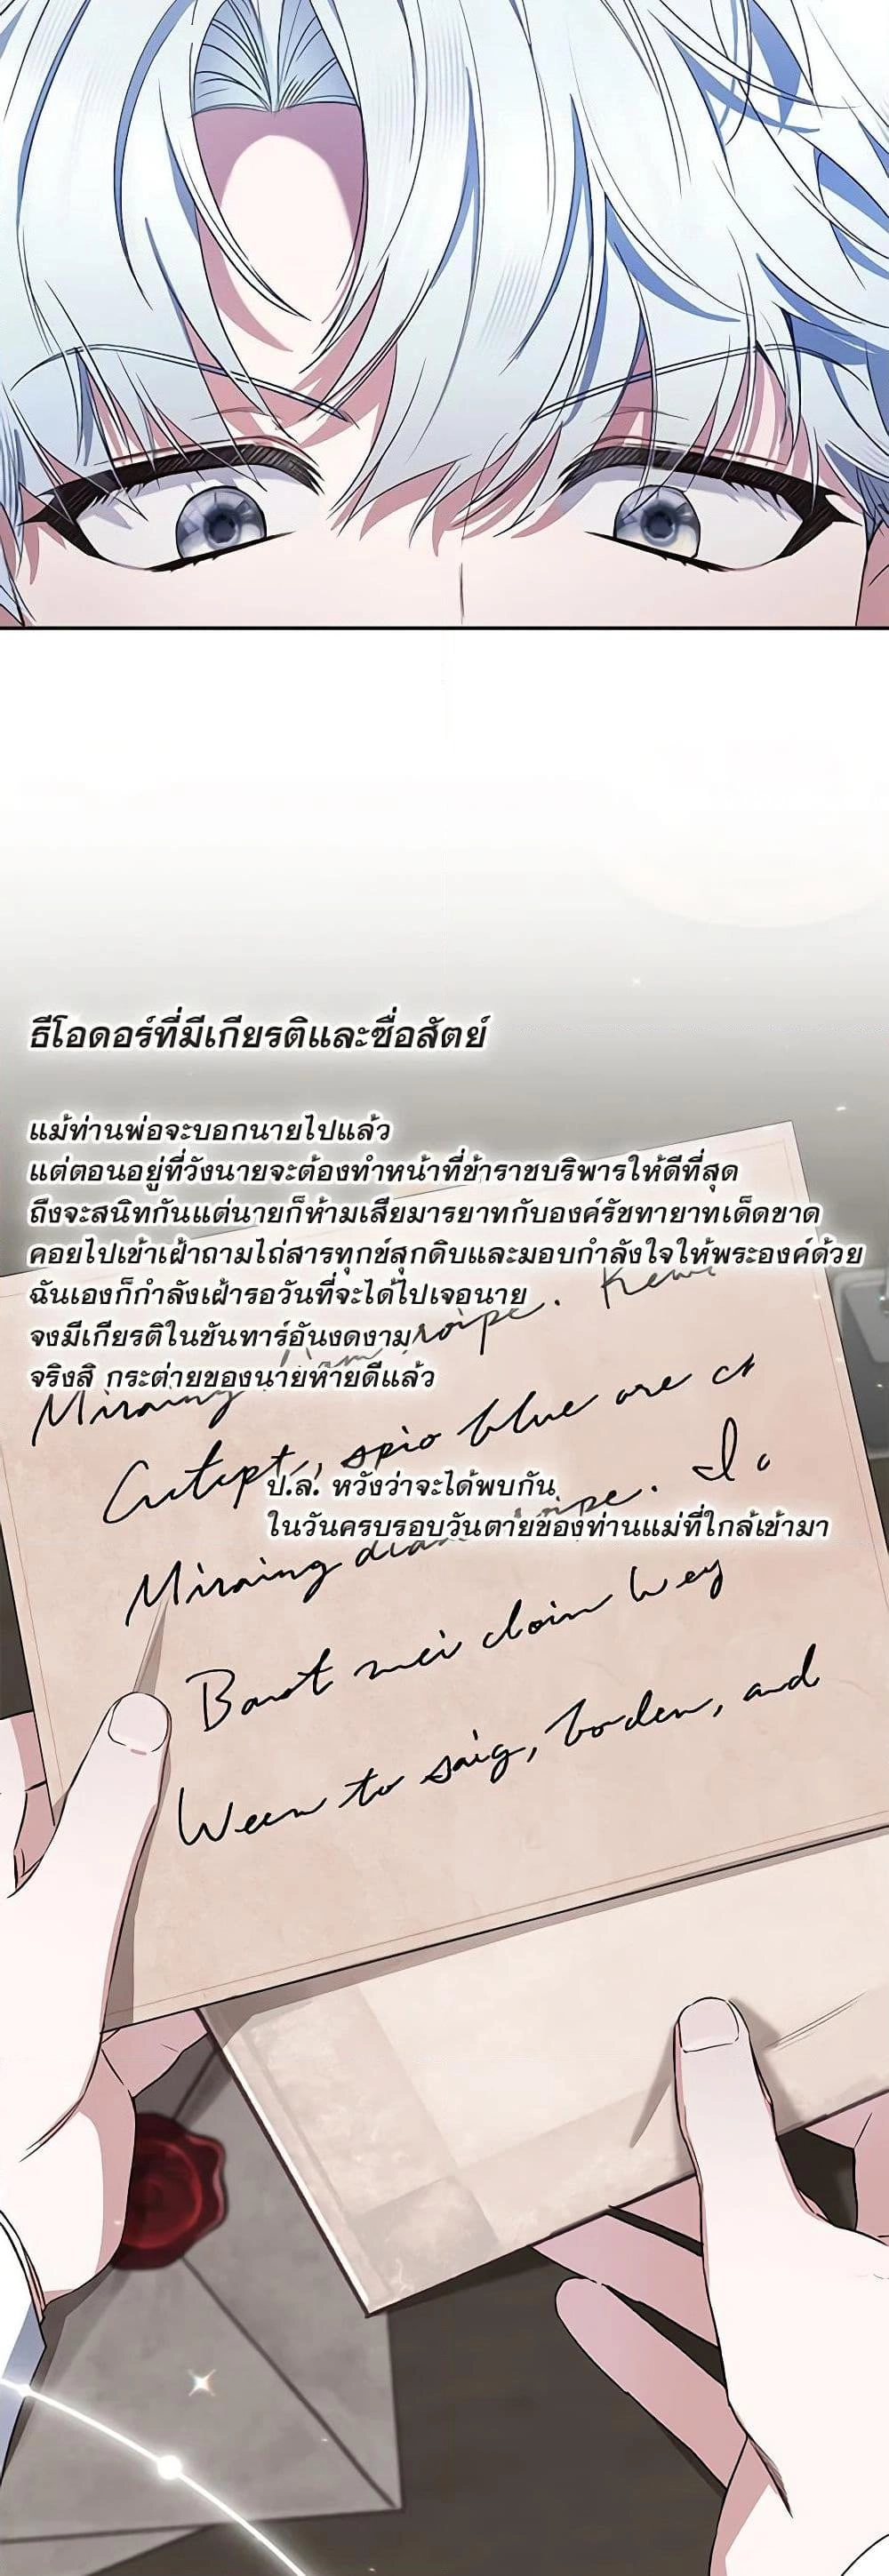 ธีโอดอร์ที่มีเกียรติและซื่อสัตย์
แม้ท่านพ่อจะบอกนายไปแล้ว
แต่ตอนอยู่ที่วังนายจะต้องทำหน้าที่ข้าราชบริพารให้ดีที่สุด
ถึงจะสนิทกันแต่นายก็ห้ามเสียมารยาทกับองค์รัชทายาทเด็ดขาด
คอยไปเข้าเฝ้าถามไถ่สารทุกข์สุกดิบและมอบกำลังใจให้พระองค์ด้วย
ฉันเองก็กำลังเฝ้ารอวันที่จะได้ไปเจอนาย
จงมีเกียรติในชันทาร์อันงดงาม
จริงสิ กระต่ายของนายหายดีแล้ว
ป.ล. หวังว่าจะได้พบกัน
ในวันครบรอบวันตายของท่านแม่ที่ใกล้เข้ามา
blue are
Miraing
to saig, boden, and